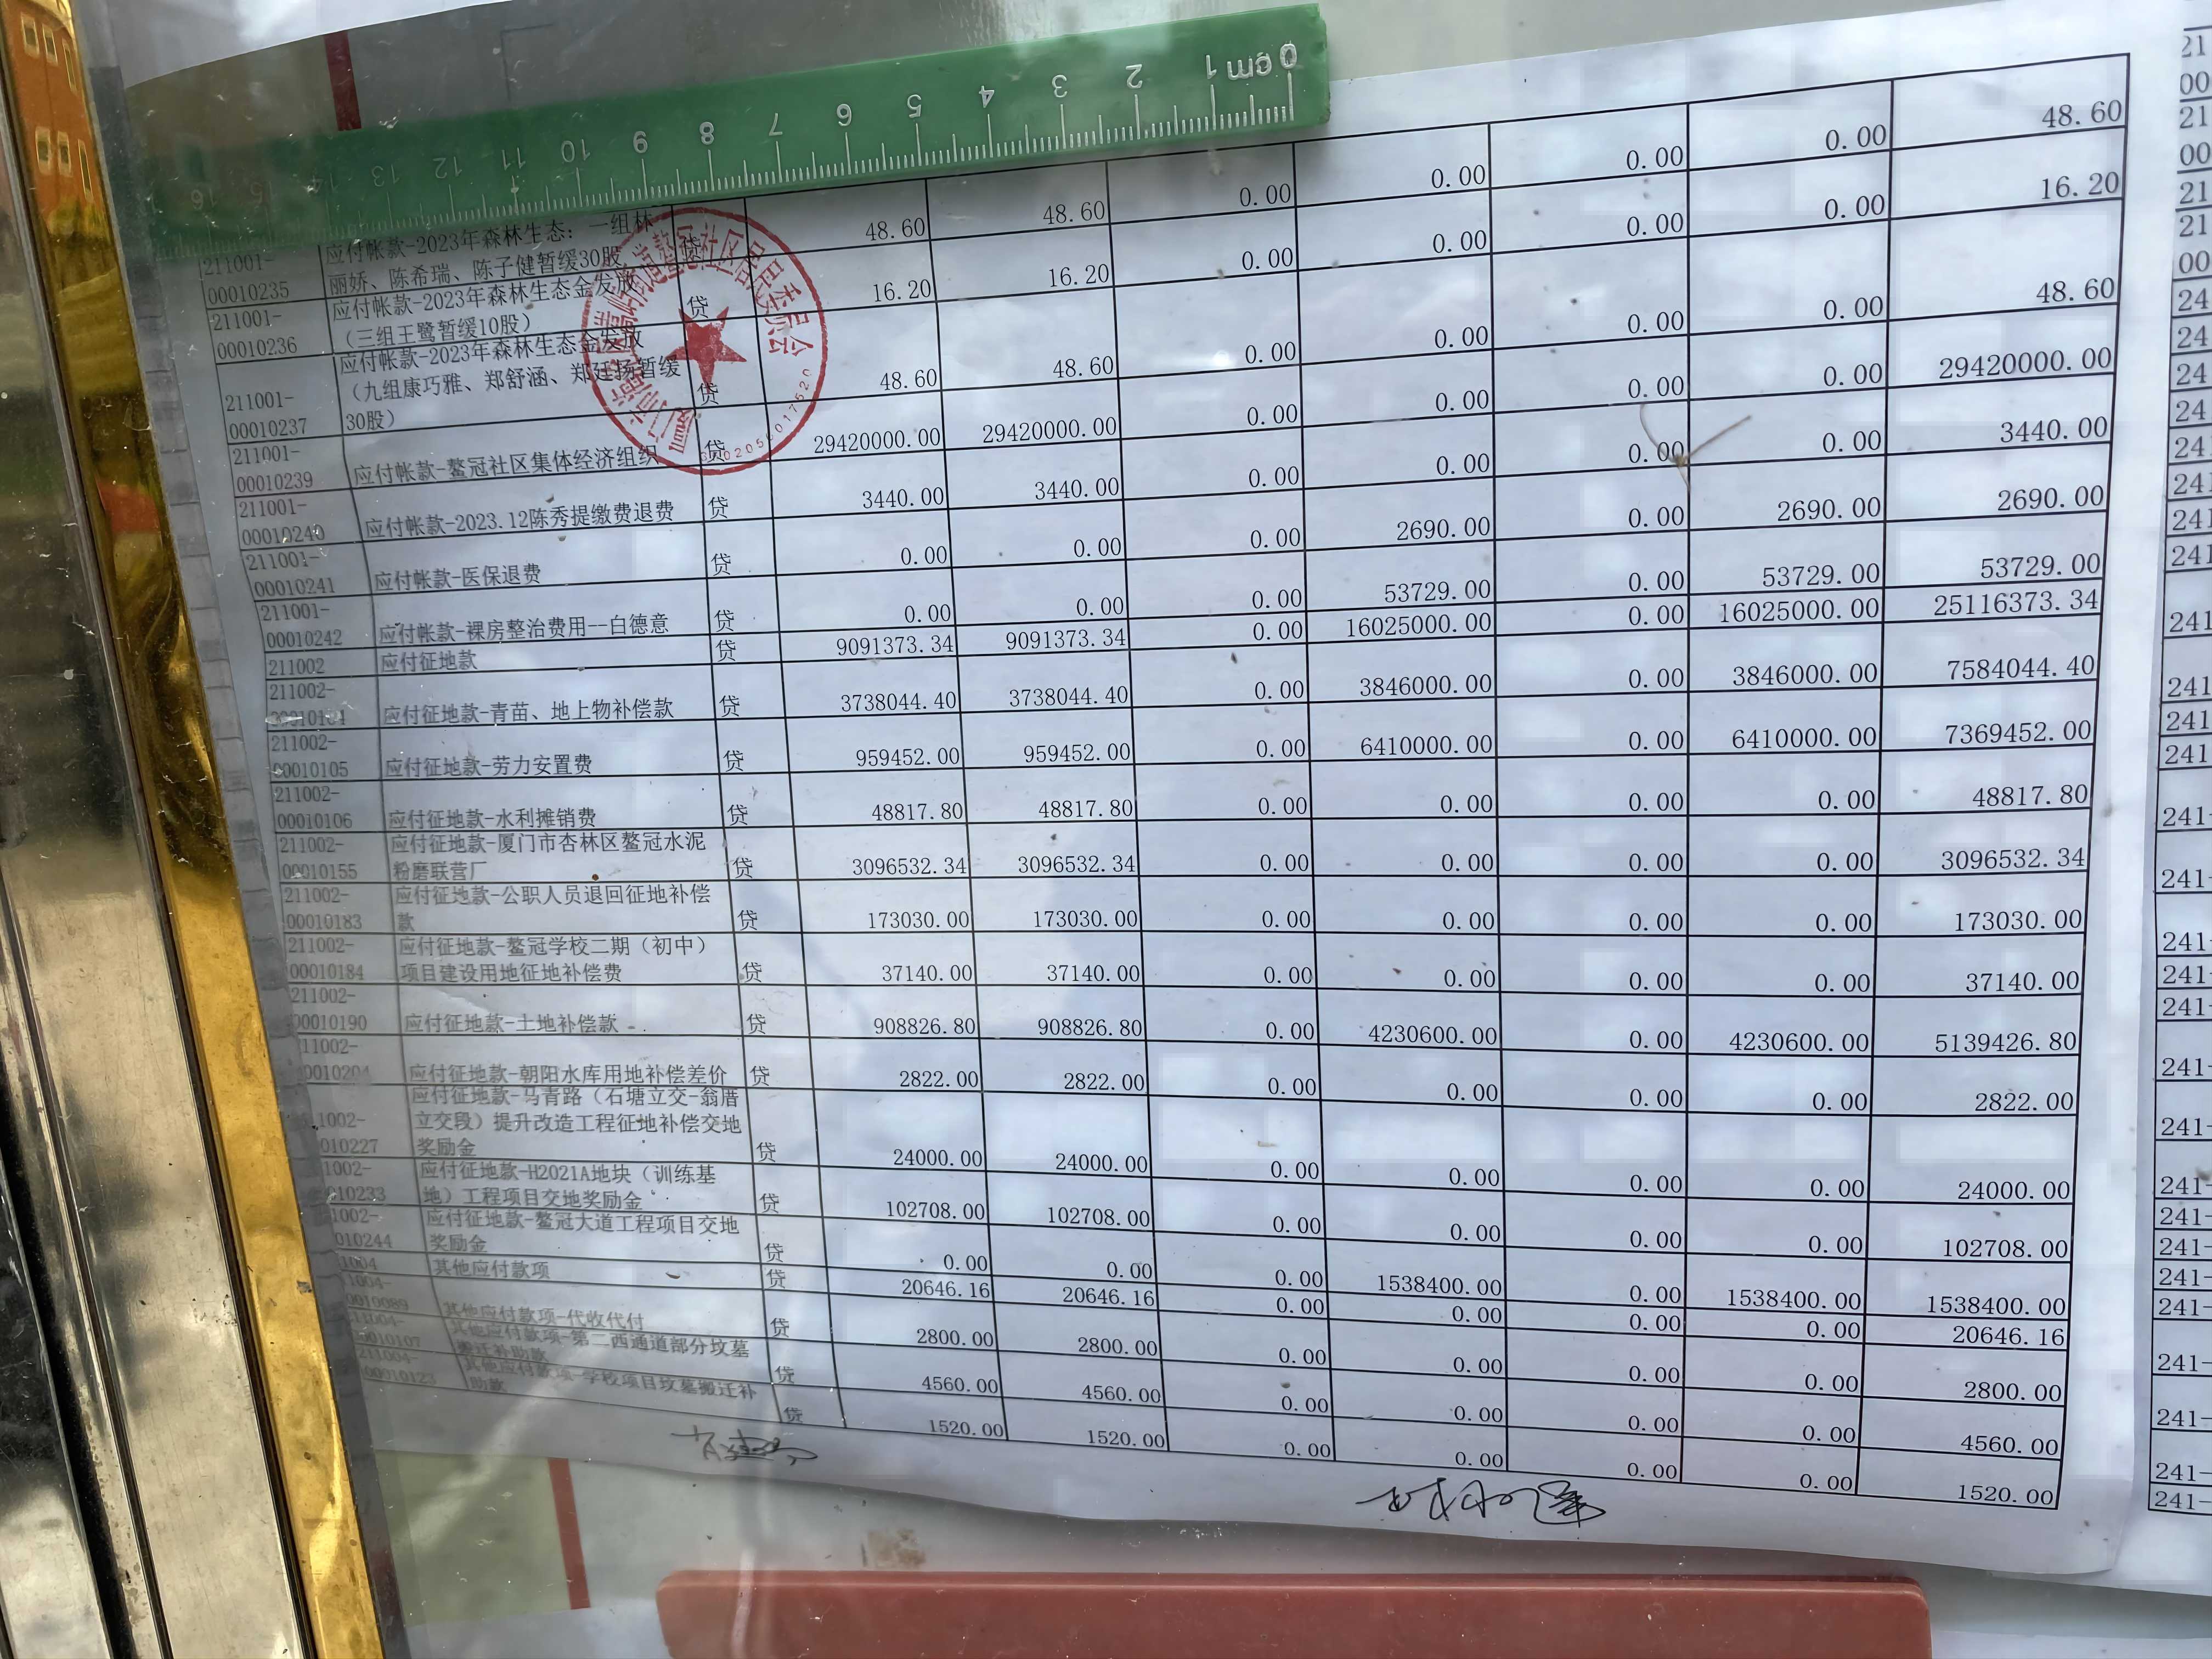 0 cm 1 2 3 4 5 6 7 8 9 10 11 12 13 14 15 16
211001-00010235 应付帐款-2023年森林生态：一组林丽娇、陈希瑞、陈子健暂缓30股 贷 48.60 48.60 0.00 0.00 0.00 0.00 48.60
211001-00010236 应付帐款-2023年森林生态金发放（三组王鹭暂缓10股） 贷 16.20 16.20 0.00 0.00 0.00 0.00 16.20
211001-00010237 应付帐款-2023年森林生态金发放（九组康巧雅、郑舒涵、郑廷扬暂缓30股） 贷 48.60 48.60 0.00 0.00 0.00 0.00 48.60
211001-00010239 应付帐款-鳌冠社区集体经济组织 贷 29420000.00 29420000.00 0.00 0.00 0.00 0.00 29420000.00
211001-00010240 应付帐款-2023.12陈秀提缴费退费 贷 3440.00 3440.00 0.00 0.00 0.00 0.00 3440.00
211001-00010241 应付帐款-医保退费 贷 0.00 0.00 0.00 2690.00 0.00 2690.00 2690.00
211001-00010242 应付帐款-裸房整治费用--白德意 贷 0.00 0.00 0.00 53729.00 0.00 53729.00 53729.00
211002 应付征地款 贷 9091373.34 9091373.34 0.00 16025000.00 0.00 16025000.00 25116373.34
211002- 应付征地款-青苗、地上物补偿款 贷 3738044.40 3738044.40 0.00 3846000.00 0.00 3846000.00 7584044.40
211002-00010105 应付征地款-劳力安置费 贷 959452.00 959452.00 0.00 6410000.00 0.00 6410000.00 7369452.00
211002-00010106 应付征地款-水利摊销费 贷 48817.80 48817.80 0.00 0.00 0.00 0.00 48817.80
211002-00010155 应付征地款-厦门市杏林区鳌冠水泥粉磨联营厂 贷 3096532.34 3096532.34 0.00 0.00 0.00 0.00 3096532.34
211002-00010183 应付征地款-公职人员退回征地补偿款 贷 173030.00 173030.00 0.00 0.00 0.00 0.00 173030.00
211002-00010184 应付征地款-鳌冠学校二期（初中）项目建设用地征地补偿费 贷 37140.00 37140.00 0.00 0.00 0.00 0.00 37140.00
211002-00010190 应付征地款-土地补偿款 贷 908826.80 908826.80 0.00 4230600.00 0.00 4230600.00 5139426.80
11002-0010204 应付征地款-朝阳水库用地补偿差价 贷 2822.00 2822.00 0.00 0.00 0.00 0.00 2822.00
1002-010227 应付征地款-马青路（石塘立交-翁厝立交段）提升改造工程征地补偿交地奖励金 贷 24000.00 24000.00 0.00 0.00 0.00 0.00 24000.00
1002-010233 应付征地款-H2021A地块（训练基地）工程项目交地奖励金 贷 102708.00 102708.00 0.00 0.00 0.00 0.00 102708.00
1002-010244 应付征地款-鳌冠大道工程项目交地奖励金 贷 0.00 0.00 0.00 1538400.00 0.00 1538400.00 1538400.00
1004 其他应付款项 贷 20646.16 20646.16 0.00 0.00 0.00 0.00 20646.16
1004-0010089 其他应付款项-代收代付 贷 2800.00 2800.00 0.00 0.00 0.00 0.00 2800.00
11004-0010107 其他应付款项-第二西通道部分坟墓搬迁补助款 贷 4560.00 4560.00 0.00 0.00 0.00 0.00 4560.00
211004-00010123 其他应付款项-学校项目坟墓搬迁补助款 贷 1520.00 1520.00 0.00 0.00 0.00 0.00 1520.00